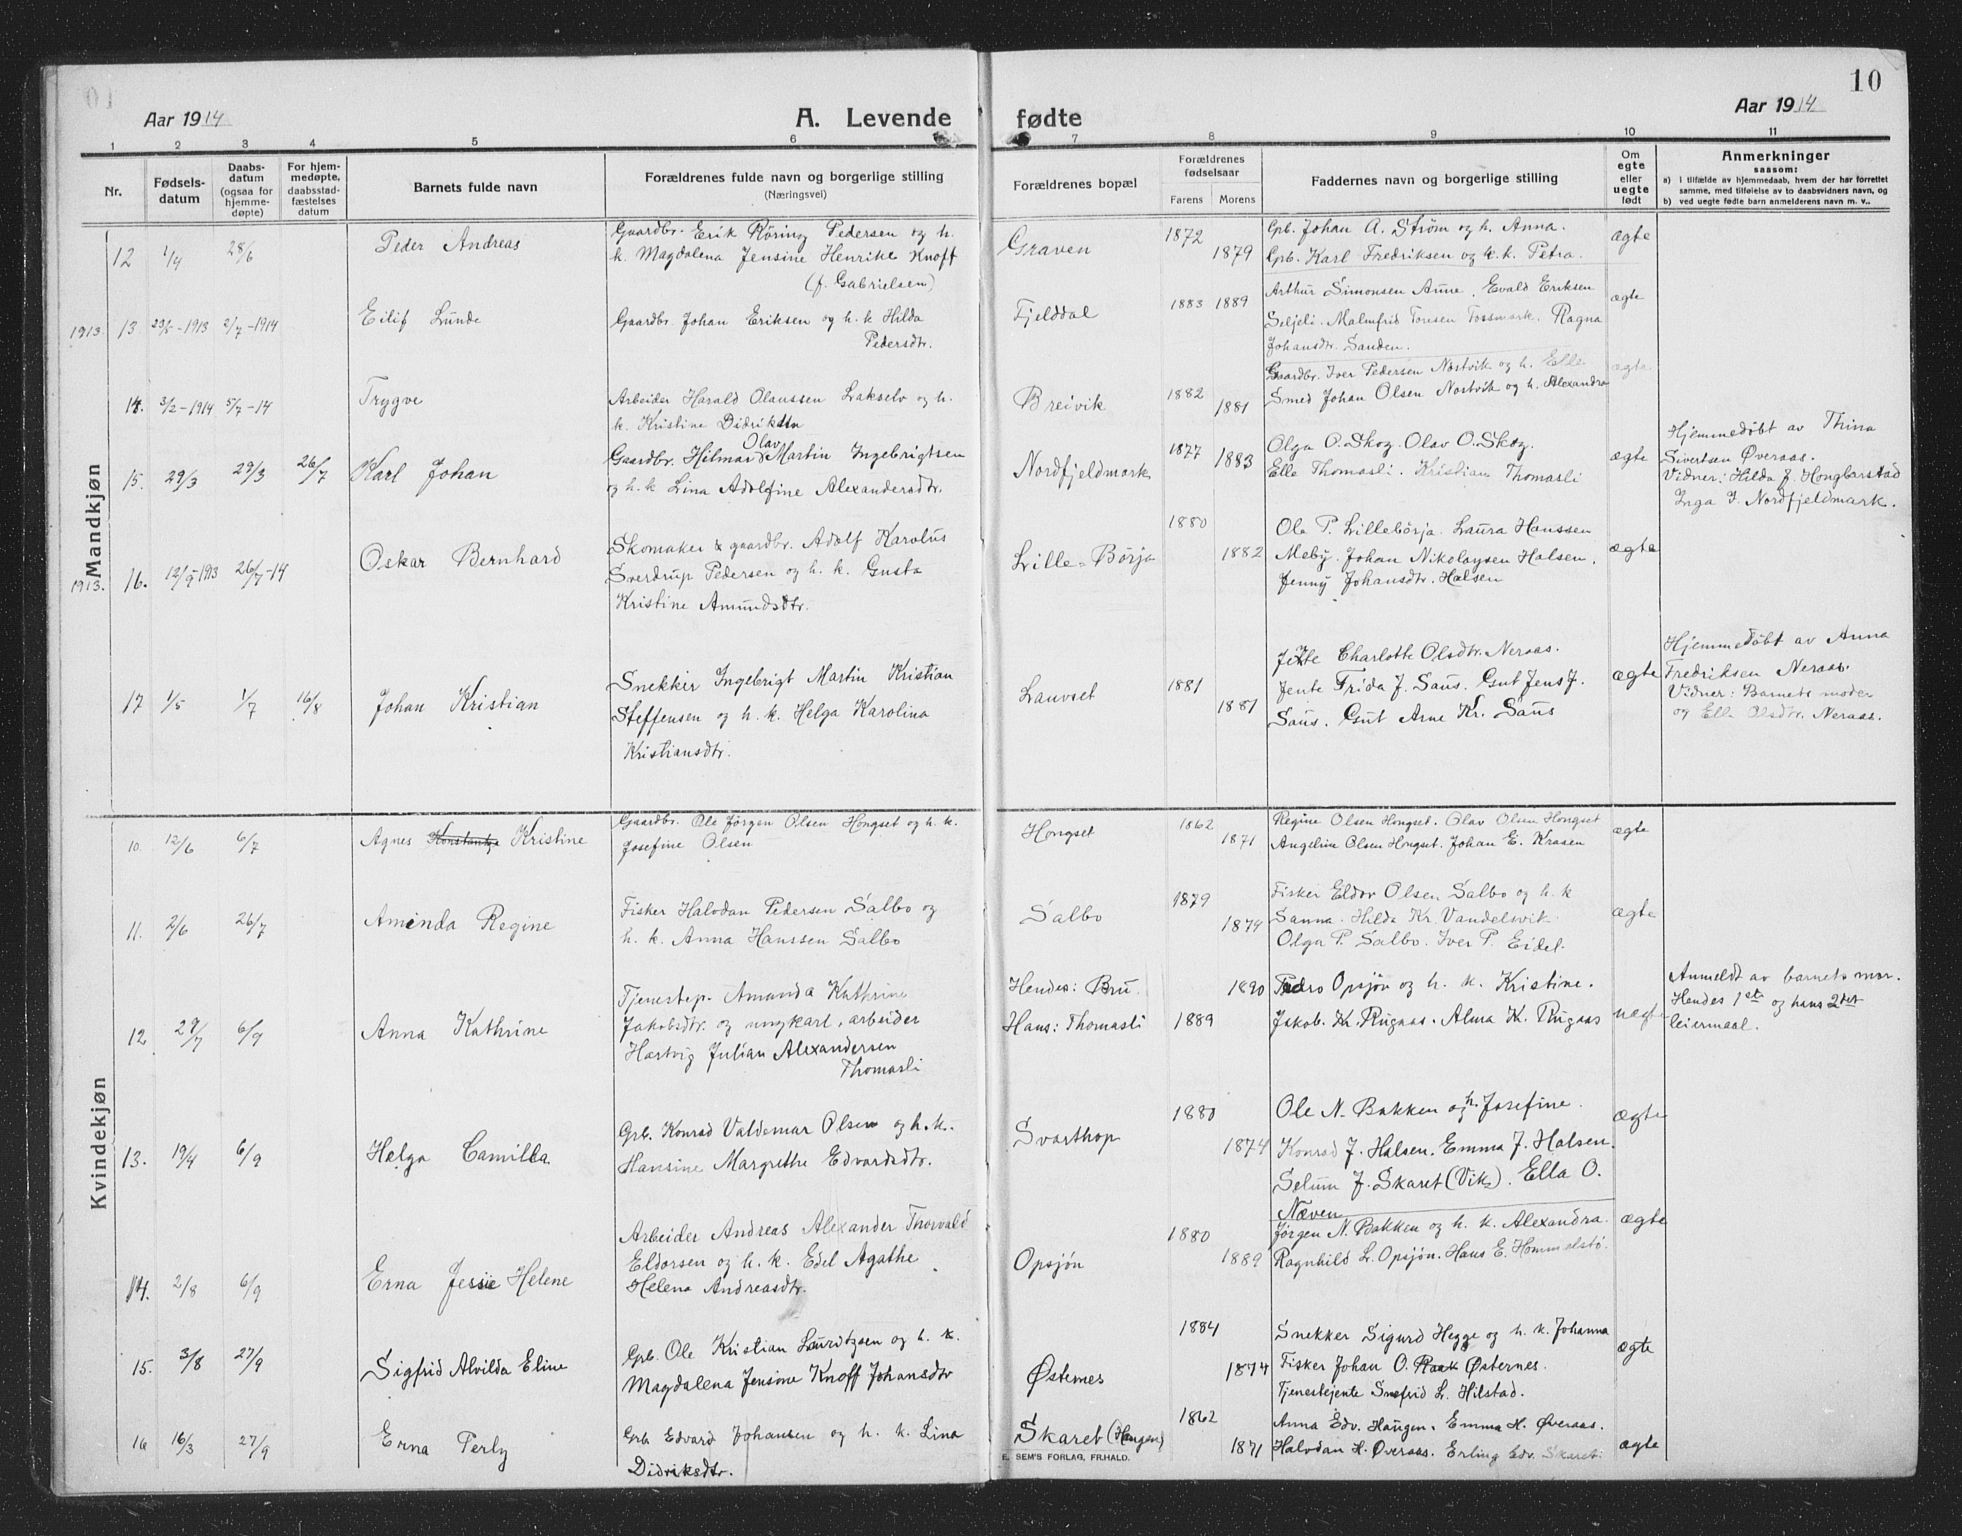 10
Aar 1914
A. Levende fødte
Aar 1914
1 2 3 4 5 6 7 8 9 10 11
Nr.
Fødsels-
datum
Daabs-
datum
(ogsaa for
hjemme-
døpte)
For hjem-
medøpte,
daabsstad-
fæstelses
datum
Barnets fulde navn
Forældrenes fulde navn og borgerlige stilling
(Næringsvei)
Forældrenes bopæl
Forældrenes
fødselsaar
Farens Morens
Faddernes navn og borgerlige stilling
Om
egte
eller
uegte
født
Anmerkninger
saasom:
a) i tilfælde av hjemmedaab, hvem der har forrettet
samme, med tilføielse av to daabsvidners navn, og
b) ved uegte fødte barn anmelderens navn m. v..
Mandkjøn
12 1/4 28/6 Peder Andreas
Gaardbr. Erik Röring Pedersen og h.
k. Magdalena Jensine Henrike Knoff
(f. Gabrielsen)
Graven 1872 1879
Grb. Johan A. Strøm og h. Anna.
Grb. Karl Fredriksen og h. k. Petra.
ægte
1913 13 29/5-1913 2/7-1914 Eilif Lunde
Gaardbr. Johan Eriksen og h. k Hilda
Pedersdtr.
Fjelddal 1883 1889
Arthur Simonsen Aune. Evald Eriksen
Seljeli. Malmfrid Toresen Fossmark. Ragna
Johansdtr. Sanden.
ægte
14. 3/2-1914 5/7-14 Trygve
Arbeider Harald Olaussen Lakselv og h.
k. Kristine Didriksen
Breivik 1882 1881
Gaardbr. Iver Pedersen Nostvik og h. Elle
Smed Johan Olsen Nostvik og h. Alexandra
ægte
15. 29/3 29/3 26/7 Karl Johan
Gaardbr. Hilmar Olav Martin Ingebrigtsen
og h. k Lina Adolfine Alexandersdtr.
Nordfjeldmark 1877 1883
Olga O. Skog. Olav O. Skog.
Elle Thomasli. Kristian Thomasli
ægte
Hjemmedøbt av Thina
Sivertsen Øveraas.
Vidner: Hilda J. Hongbarstad
Inga J. Nordfjeldmark.
1913. 16. 12/9-1913 26/7-14 Oskar Bernhard
Skomaker & gaardbr. Adolf Karolus
Sverdrup Pedersen og h. k. Gusta
Kristine Amundsdtr.
Lille-Börja 1880 1882
Ole P. Lillebörja. Laura Hanssen
Meby. Johan Nikolaysen Halsen.
Jenny Johansdtr. Halsen
ægte
17 1/5 1/7 16/8 Johan Kristian
Snekker Ingebrigt Martin Kristian
Steffensen og h. k. Helga Karolina
Kristiansdtr.
Lauvset 1881 1881
Jente Charlotte Olsdtr. Neraas.
Jente Frida J. Saus. Gut Jens J.
Saus. Gut Arne Kr. Saus
ægte
Hjemmedöbt av Anna
Fredriksen Neraas.
Vidner: Barnets moder
og Elle Olsdtr. Neraas.
Kvindekjøn
10. 12/6 6/7 Agnes Konstantza Kristine
Gaardbr. Ole Jörgen Olsen Hongset og h. k.
Josefine Olsen
Hongset 1862 1871
Regine Olsen Hongset. Olav Olsen Hongset
Angeline Olsen Hongset. Johan E. Kraaen
ægte
11. 2/6 26/7 Aminda Regine
Fisker Halvdan Pedersen Salbo og
h. k. Anna Hanssen Salbo
Salbo 1879 1879
Fisker Eldor Olsen Salbo og h. k
Sanna. Hilda Kr. Vandelsvik.
Olga P. Salbo. Iver P. Eidel.
ægte
12 29/7 6/9 Anna Kathrine
Tjenestep. Amanda Kathrine
Jakobsdtr. og ungkarl, arbeider
Hartvig Julian Alexandersen
Thomasli
Hendes: Bru.
Hans: Thomasli
1889 1890
Pedro Opsjön og h. k. Kristine.
Jakob. K. Rugaas. Alma K. Rugaas
uægte
Anmeldt av barnets mor.
Hendes 1ste og hans 2det
leiermaal.
13. 19/4 6/9 Helga Camilla
Grb. Konrad Valdemar Olsen og h. k.
Hansine Margrethe Edvardsdtr.
Svarthop 1880 1874
Ole N. Bakken og h. Josefine.
Konrad J. Halsen. Emma J. Halsen.
Selum J. Skaret (Vik). Ella O.
Næven
ægte
14. 2/8 6/9 Erna Jessie Helene
Arbeider Andreas Alexander Thorvald
Eldorsen og h. k. Edel Agathe
Helena Andreasdtr.
Opsjön 1880 1889
Jørgen N. Bakken og h. k. Alexandra.
Ragnhild L. Opsjön. Hans E. Hommelstø.
ægte
15. 3/8 27/9 Sigfrid Alvilda Eline
Grb. Ole Kristian Lauritzsen og h. k.
Magdalena Jensine Knoff Johansdtr
Østernes 1884 1874
Snekker Sigurd Hegge og h. k. Johanna
Fisker Johan O. Raak Østernes.
Tjenestejente Snefrid L. Hilstad.
ægte
16 16/3 27/9 Erna Perly
Grb. Edvard Johansen og h. k. Lina
Didriksdtr.
Skaret (Haugen) 1862 1871
Anna Edv. Haugen. Emma H. Øveraas.
Halvdan H. Øveraas. Erling Edv. Skaret.
ægte
E. SEM'S FORLAG, FR.HALD.